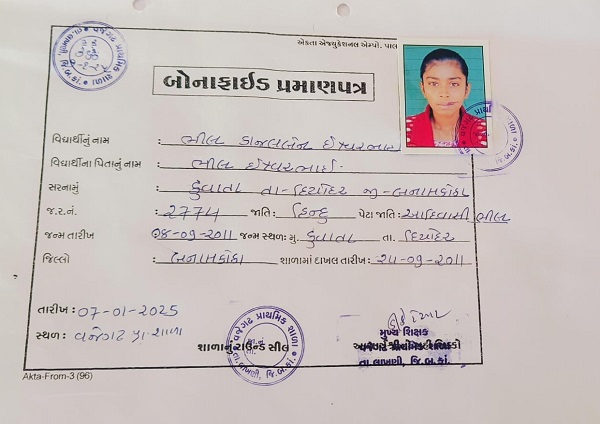 એકતા એજ્યુકેશનલ એમ્પો. પાલ
બોનાફાઇડ પ્રમાણપત્ર
વિદ્યાર્થીનું નામ : ભીલ કાજલબેન ઈશ્વરભાઈ
વિદ્યાર્થીના પિતાનું નામ : ભીલ ઈશ્વરભાઈ
સરનામું : કુવાતા તા-દિયોદર જી-બનાસકાંઠા
જ.ર.નં. : 2774 જાતિ : હિન્દુ પેટા જાતિ : આદિવાસી ભીલ
જન્મ તારીખ 04-09-2011 જન્મ સ્થળ: મુ. કુવાતા તા. દિયોદર
જિલ્લો : બનાસકાંઠા શાળામાં દાખલ તારીખ :
તારીખ : 07-01-2025
સ્થળ : વજેગઢ પ્રા શાળા
શાળાનું રાઉન્ડ સીલ
મુખ્ય શિક્ષક
વજેગઢ પ્રાથમિક શાળા
તા.લાખણી, જિ.બ.કાં.
Akta-From-3 (96)